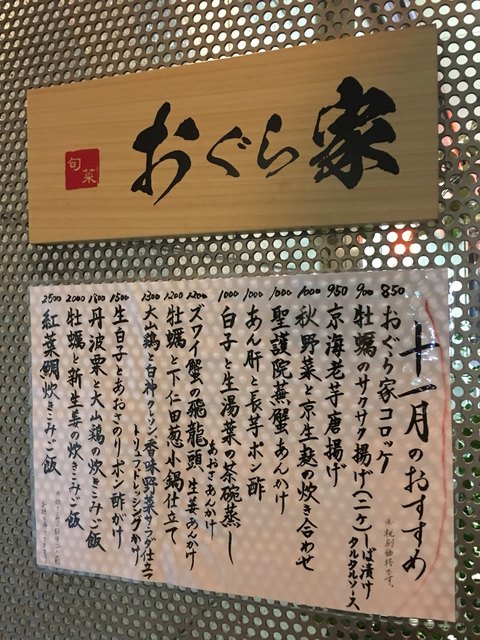 旬菜
おぐら家
十一月のおすすめ
※税別価格です。
850 おぐら家コロッケ
900 牡蠣のサクサク揚げ(二ヶ)しば漬け
タルタルソース
950 京海老芋唐揚げ
1000 秋野菜と京生麩の炊き合わせ
1000 聖護院蒸蟹あんかけ
1000 あん肝と長芋ポン酢
1000 白子と生湯葉の茶碗蒸し
あおさあんかけ
1200 ズワイ蟹の飛龍頭 生姜あんかけ
1200 牡蠣と下仁田葱小鍋仕立て
1300 大山鶏と白神 香味野菜サラダ仕立て
トリュフドレッシングかけ
1500 生白子とあおさのりポン酢がけ
1800 丹波栗と大山鶏の炊きこみご飯
2000 牡蠣と新生姜の炊きこみご飯
2500 紅葉鯛炊きこみご飯